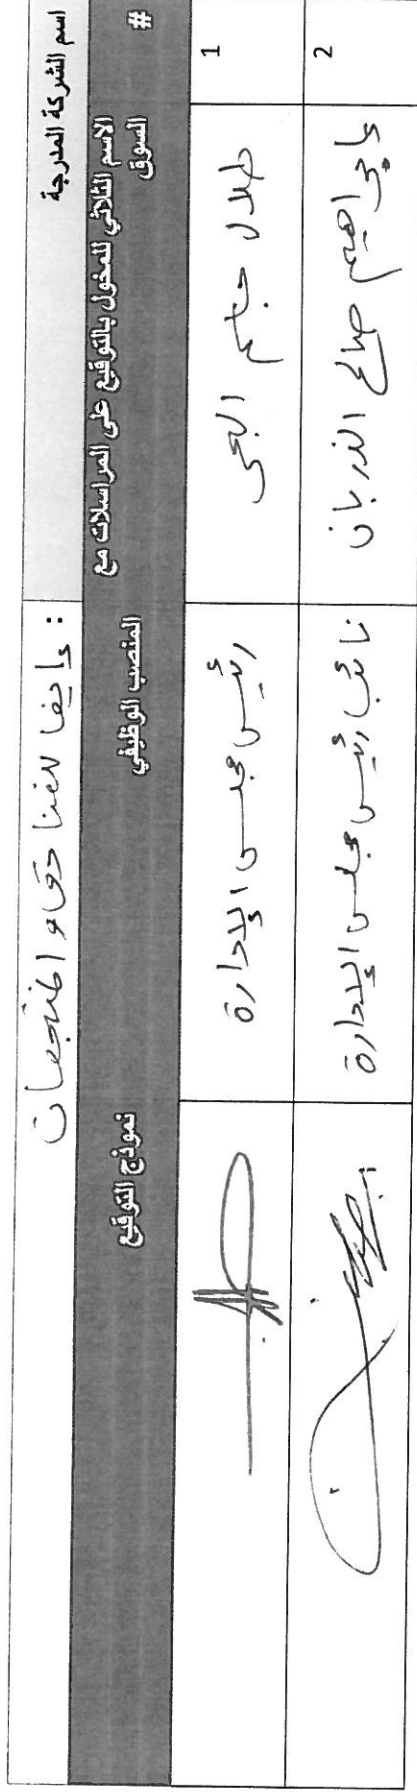 اسم الشركة المدرجة : عايفا للفنادق والمنتجعات
#
الاسم الثلاثي للمخول بالتوقيع على المراسلات مع السوق
المنصب الوظيفي
نموذج التوقيع
1
طلال جاسم البحر
رئيس مجلس الإدارة
2
ابراهيم صالح الذربان
نائب رئيس مجلس الإدارة